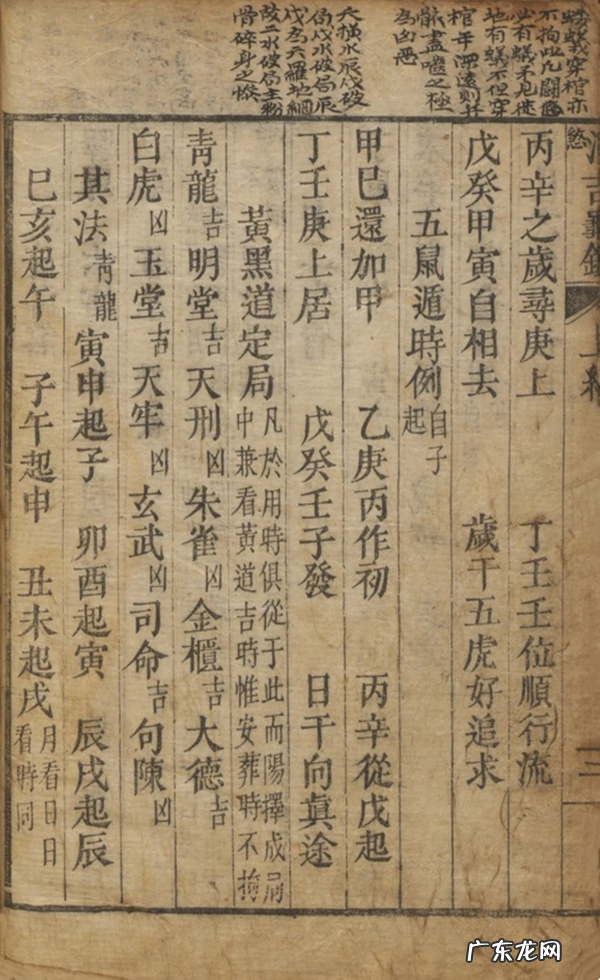 穿棺亦
地有蟻不但穿
棺年深遠則并
骸盡噬之極
為凶惡
大橫水辰戌破
局戊水破局辰
戌為天羅地網
故二水破局主粉
骨碎身之慘
三
丙辛之歲尋庚上 丁壬壬位順行流
戊癸甲寅自相去 歲干五虎好追求
五鼠遁時例 自子起
甲巳還加甲 乙庚丙作初 丙辛從戊起
丁壬庚上居 戊癸壬子發 日干向真途
黃黑道定局 凡於用時俱從于此而陽擇成局
中兼看黃道吉時惟安葬時不拘
青龍吉 明堂吉 天刑凶 朱雀凶 金櫃吉 大德吉
白虎凶 玉堂吉 天牢凶 玄武凶 司命吉 句陳凶
其法青龍 寅申起子 卯酉起寅 辰戌起辰
巳亥起午 子午起申 丑未起戌 月看日日看時同
广东龙网